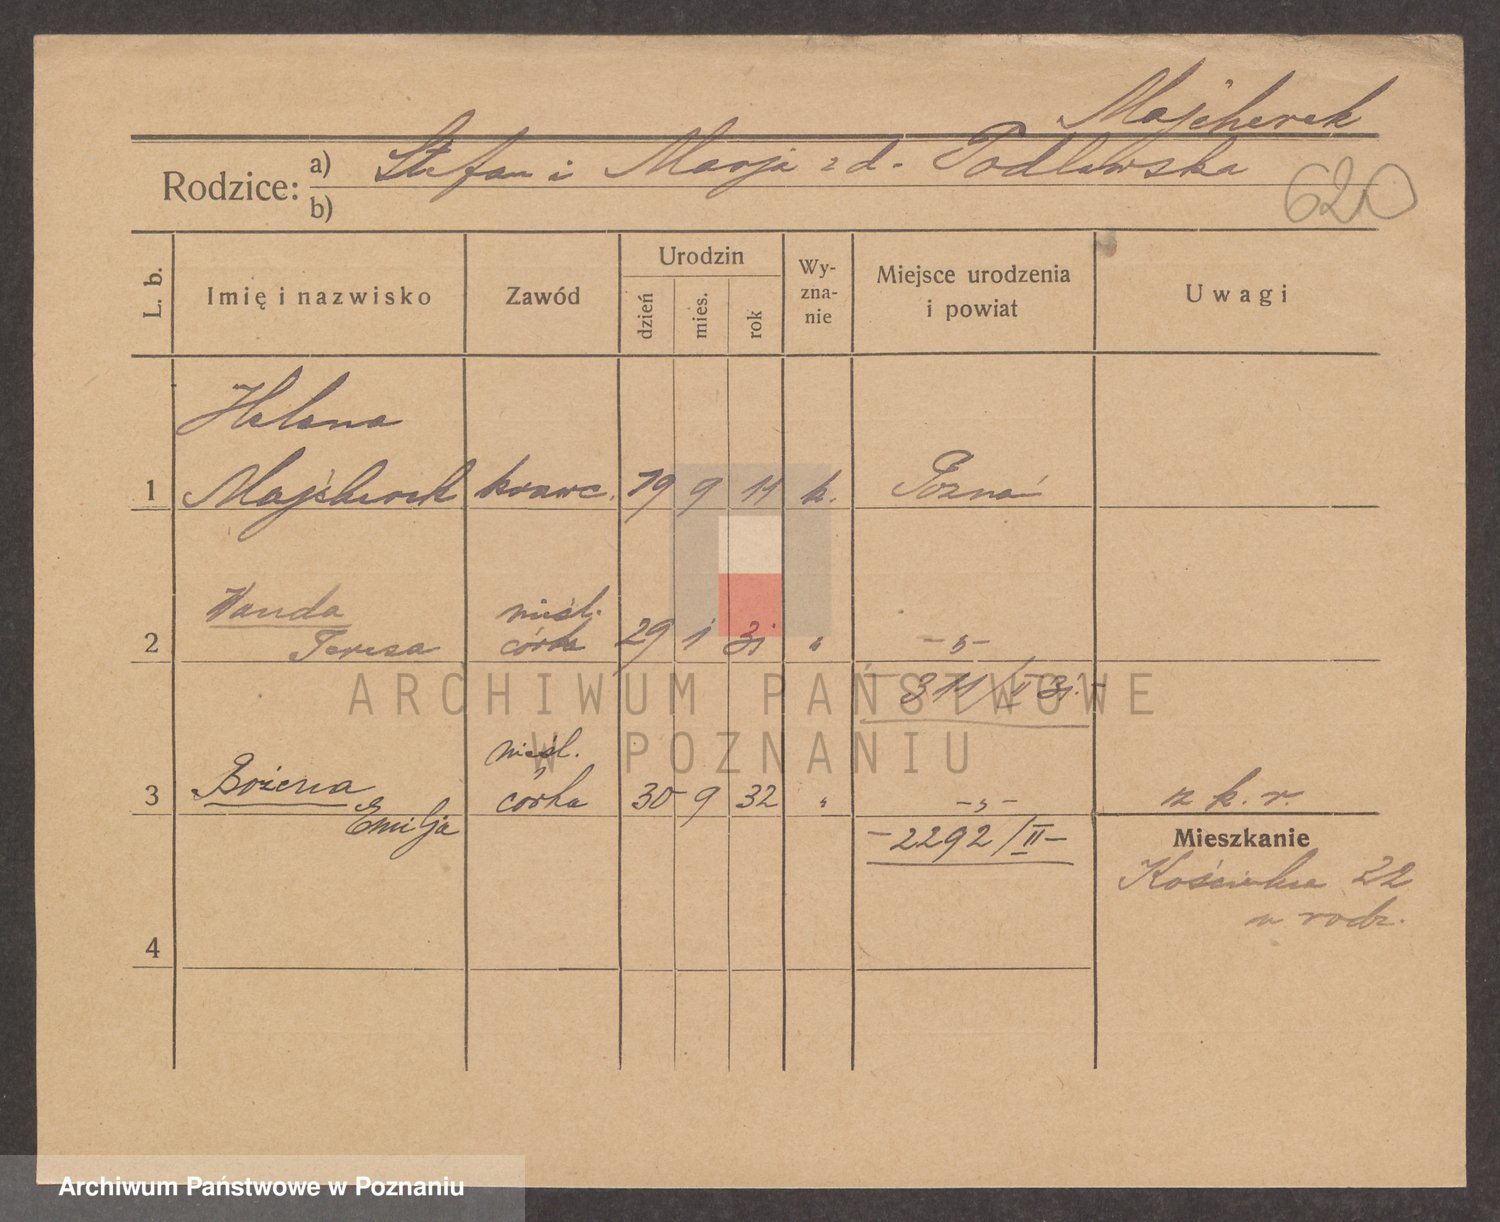 Majcherek
Rodzice: a) Stefan i Marja z d. Podlewska
b)
620
L. b. Imię i nazwisko Zawód Urodzin dzień mies. rok Wy-zna-nie Miejsce urodzenia i powiat Uwagi
Helena
1 Majcherek krawc. 19 9 11 k. Poznań
Wanda nieśl.
2 Teresa córka 29 1 31 " -"-
311/II 31.-
nieśl.
3 Bożena córka 30 9 32 " -"- z k. r.
Emilja -2292/II- Mieszkanie
22
w rodz.
4
ARCHIWUM PAŃSTWOWE
W POZNANIU
Archiwum Państwowe w Poznaniu